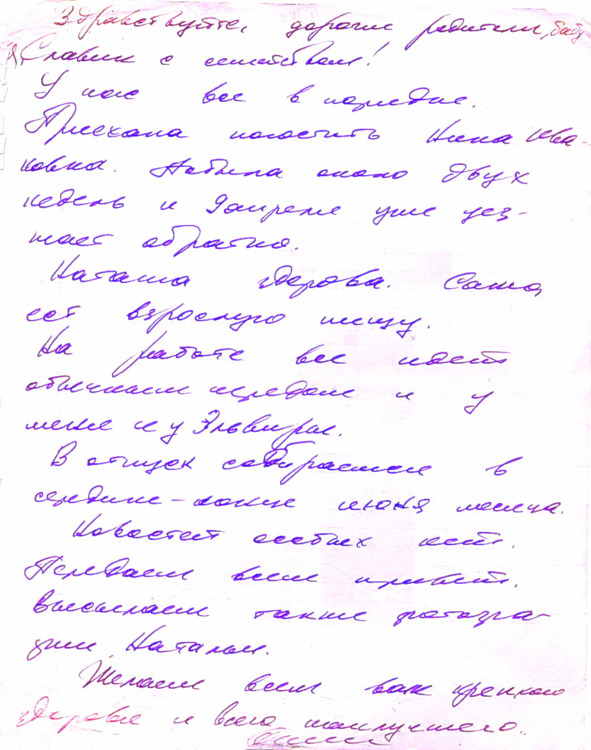 Здравствуйте, дорогие родители, баба
Славик с семейством!
У нас все в порядке.
Приехала погостить Нина Ива-
новна. Побыла около двух
недель и 9 апреля уже уез-
жает обратно.
Наташа здорова. Сама
ест взрослую пищу.
На работе все идет
обычным чередом и у
меня и у Эльвиры.
В отпуск собираемся в
середине - конце июня месяца.
Новостей особых нет.
Передаем всем привет.
Высылаем также фотогра-
фии Натальи.
Желаем всем вам крепкого
здоровья и всего наилучшего.